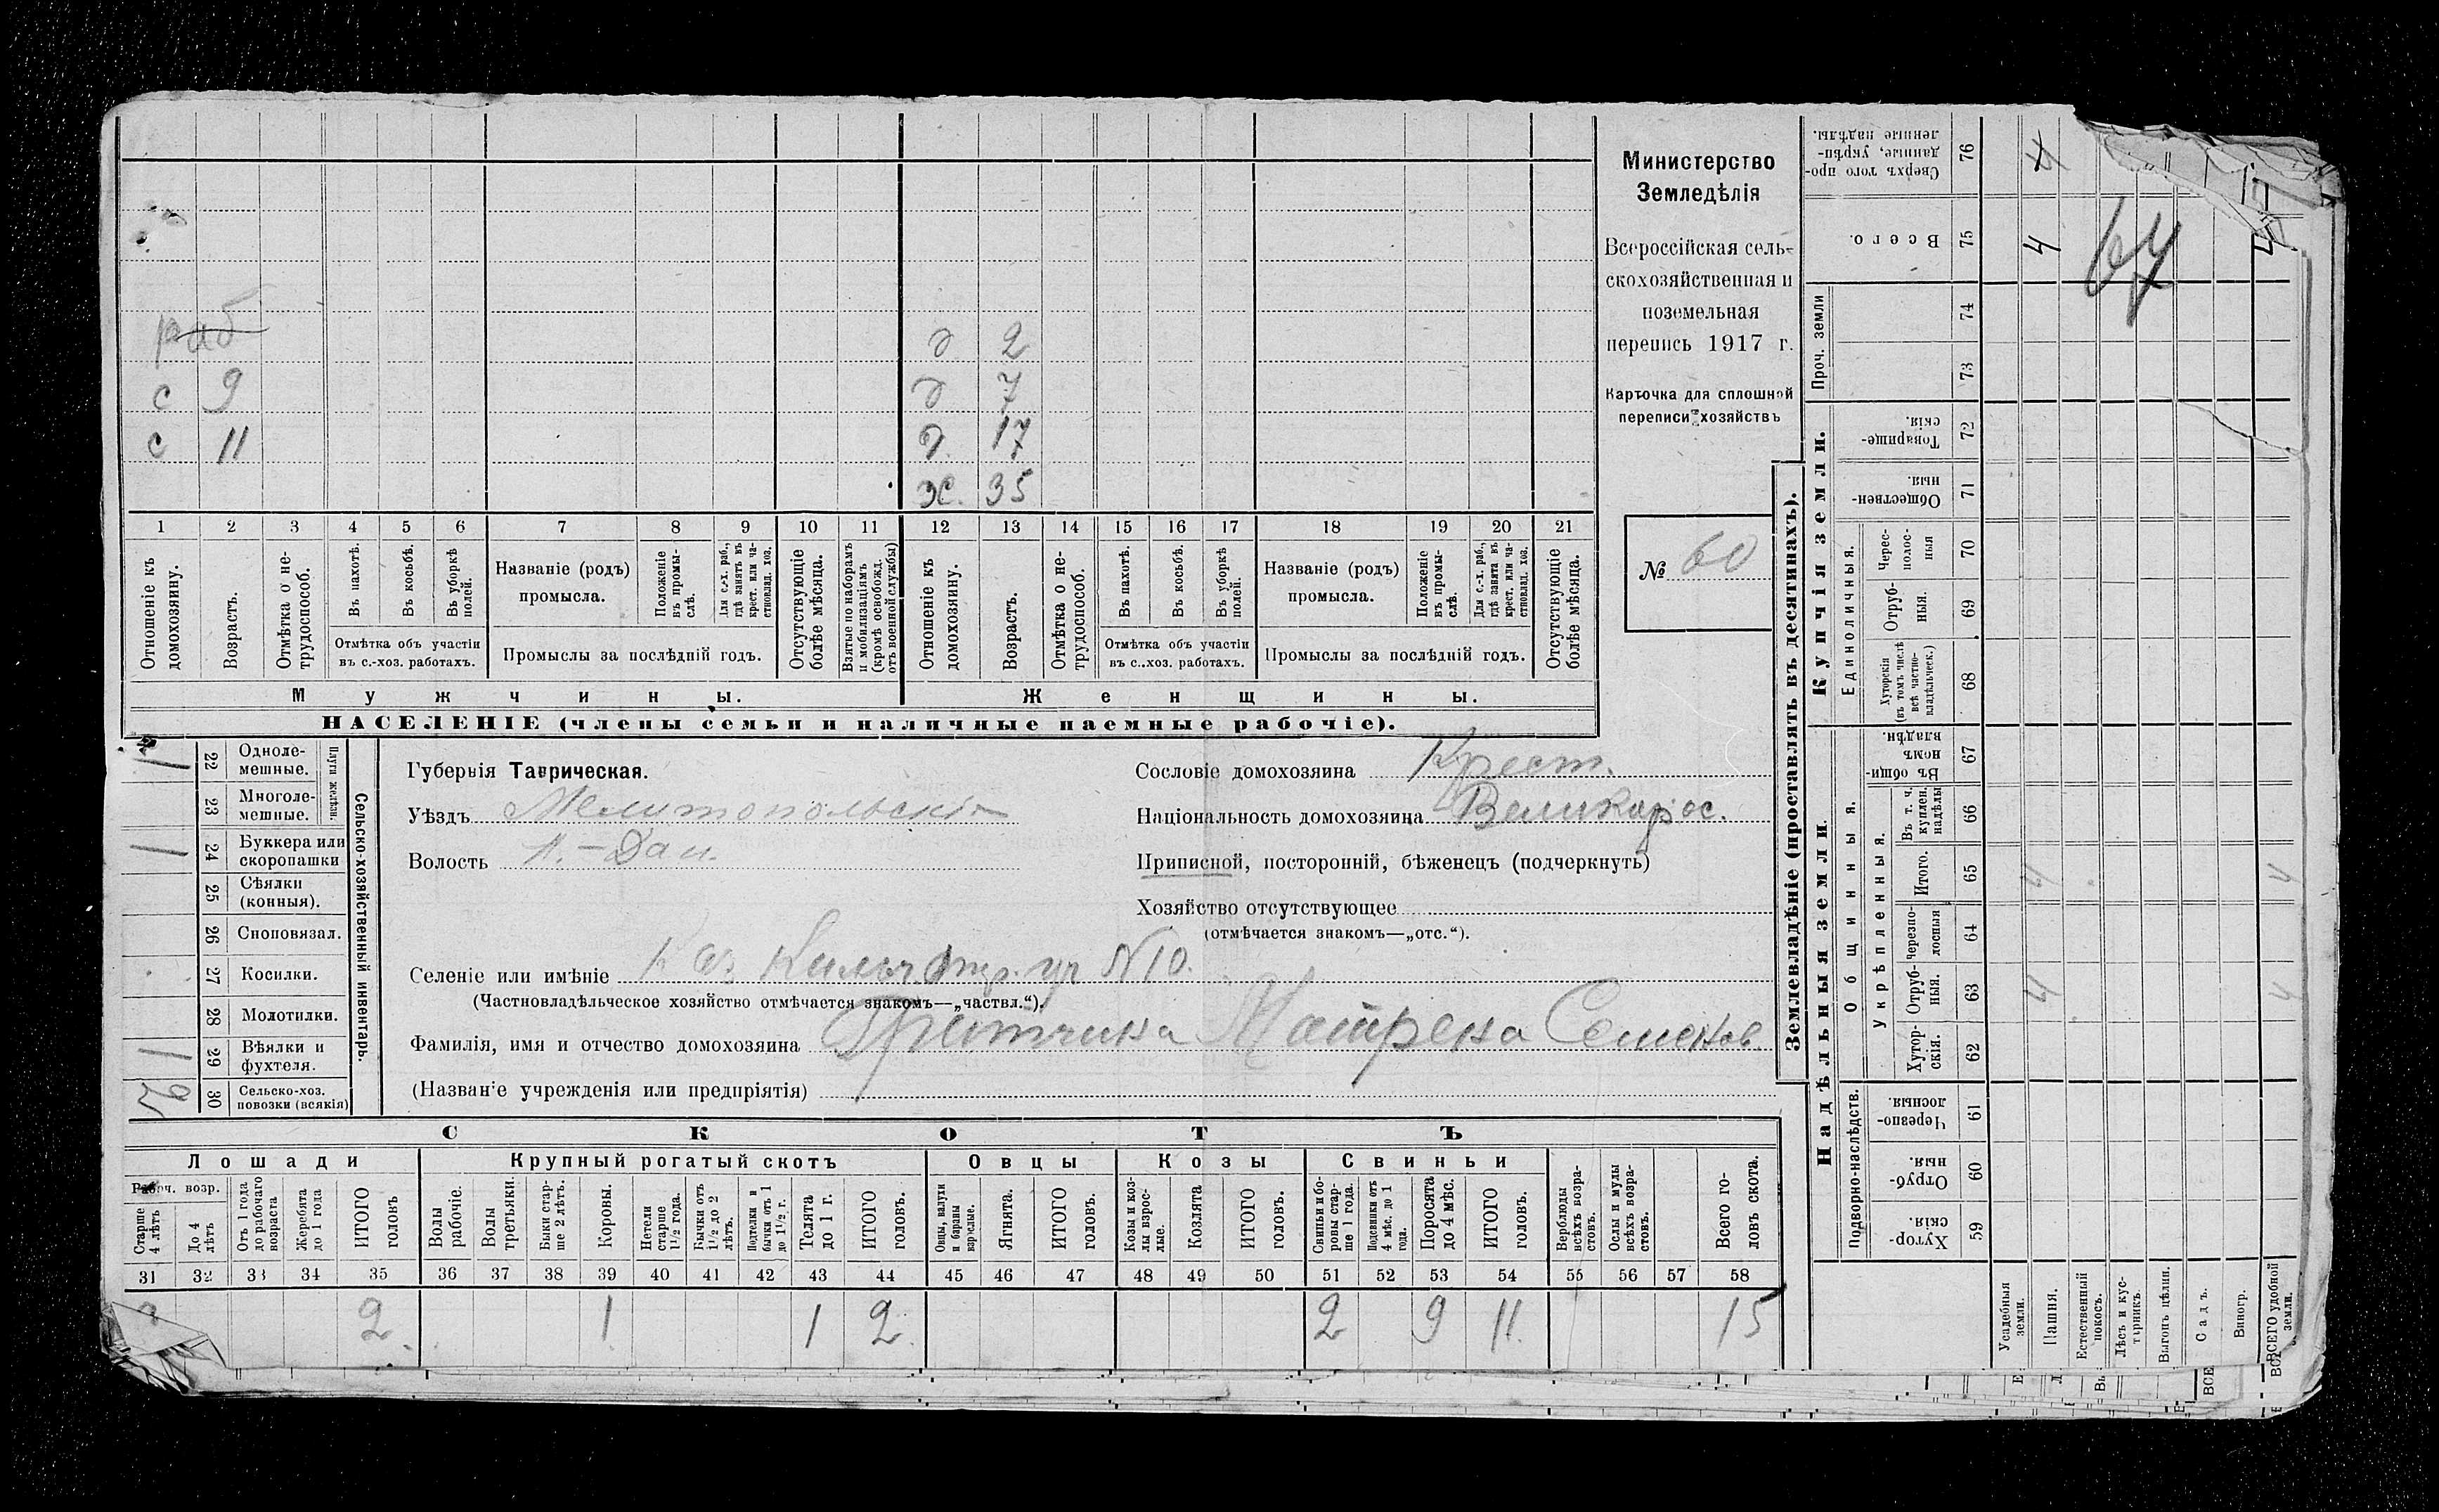 раб д 2
с 9 д 7
с 11 д. 17
ж. 35
1 2 3 4 5 6 7 8 9 10 11 12 13 14 15 16 17 18 19 20 21
Отношеніе къ домохозяину.
Возрастъ.
Отмѣтка о не-
трудоспособ.
Въ пахотѣ.
Въ косьбѣ.
Въ уборкѣ
полей.
Отмѣтка объ участіи
въ с.-хоз. работахъ.
Названіе (родъ)
промысла.
Положеніе
въ промы-
слѣ.
Для с.-х. раб.,
гдѣ занятъ въ
крест. или ча-
стновлад. хоз.
Промыслы за послѣдній годъ.
Отсутствующіе
болѣе мѣсяца.
Взятые по наборамъ
и мобилизаціямъ
(кромѣ освобожд.
отъ военной службы)
Отношеніе къ
домохозяину.
Возрастъ.
Отмѣтка о не-
трудоспособ.
Въ пахотѣ.
Въ косьбѣ.
Въ уборкѣ
полей.
Отмѣтка объ участіи
въ с..хоз. работахъ.
Названіе (родъ)
промысла.
Положеніе
въ промы-
слѣ.
Для с.-х. раб.,
гдѣ занята въ
крест. или ча-
стновлад. хоз.
Промыслы за послѣдній годъ.
Отсутствующіе
болѣе мѣсяца.
Мужчины. Женщины.
НАСЕЛЕНІЕ (члены семьи и наличные наемные рабочіе).
Министерство
Земледѣлія
Всероссійская сель-
скохозяйственная и
поземельная
перепись 1917 г.
Карточка для сплошной
переписи хозяйствъ
№ 60
Сельско-хозяйственный инвентарь.
Плуги желѣзн.
1 22 Одноле-
мешные.
23 Многоле-
мешные.
1 24 Буккера или
скоропашки
25 Сѣялки
(конныя).
26 Сноповязал.
27 Косилки.
28 Молотилки.
1 29 Вѣялки и
фухтеля.
30 Сельско-хоз.
повозки (всякія)
Губернія Таврическая.
Уѣздъ Мелитопольскій
Волость
Сословіе домохозяина Крест.
Національность домохозяина Великорос.
Приписной, посторонній, бѣженецъ (подчеркнуть)
Хозяйство отсутствующее
(отмѣчается знакомъ—„отс.“).
Селеніе или имѣніе Каз. N 10.
(Частновладѣльческое хозяйство отмѣчается знакомъ—„частвл.“).
Фамилія, имя и отчество домохозяина Притчина Матрена Семенов.
(Названіе учрежденія или предпріятія)
СКОТЪ
Лошади Крупный рогатый скотъ Овцы Козы Свиньи
Рабоч. возр.
Старше
4 лѣтъ
До 4
лѣтъ
Отъ 1 года
до рабочаго
возраста
Жеребята
до 1 года
ИТОГО
головъ
Волы
рабочіе.
Волы
третьяки.
Быки стар-
ше 2 лѣтъ.
Коровы.
Нетели
старше
1½ года.
Бычки отъ
1½ до 2
лѣтъ.
Подтелки и
бычки отъ 1
до 1½ г.
Телята
до 1 г.
ИТОГО
головъ.
Овцы, валухи
и бараны
взрослые.
Ягнята.
ИТОГО
головъ.
Козы и коз-
лы взрос-
лые.
Козлята
ИТОГО
головъ.
Свиньи и бо-
ровы стар-
ше 1 года.
Подсвинки отъ
4 мѣс. до 1
года.
Поросята
до 4 мѣс.
ИТОГО
головъ.
Верблюды
всѣхъ возра-
стовъ.
Ослы и мулы
всѣхъ возра-
стовъ.
Всего го-
ловъ скота.
31 32 33 34 35 36 37 38 39 40 41 42 43 44 45 46 47 48 49 50 51 52 53 54 55 56 57 58
2 1 1 2 2 9 11 15
Землевладѣніе (проставлять въ десятинахъ).
Надѣльныя земли
Купчія земли.
Проч. земли
Подворно-наслѣдств.
Общинныя.
Укрѣпленныя.
Единоличныя.
Сверхъ того про-
данные, укрѣп-
ленные надѣлы.
76 4
Всего.
75 4 64 4
74
73
Товарище-
скія.
72
Обществен-
ныя.
71
Черес-
полос-
ныя
70
Отруб-
ныя.
69
Хуторскія
(въ томъ числѣ
всѣ частно-
владѣльческ.)
68
Въ общи-
номъ
владѣн.
67
Въ т. ч.
куплен.
надѣлы
66
Итого.
65 4 4
Черезпо-
лосныя
64
Отруб-
ныя.
63 4 4
Хутор-
скія.
62
Черезпо-
лосныя.
61
Отруб-
ныя.
60
Хутор-
скія.
59
Усадебныя
земли.
Пашня.
Естественный
покосъ.
Лѣсъ и кус-
тарникъ.
Выгонъ цѣлин.
Садъ.
Виногр.
ВСЕГО удобной
земли.